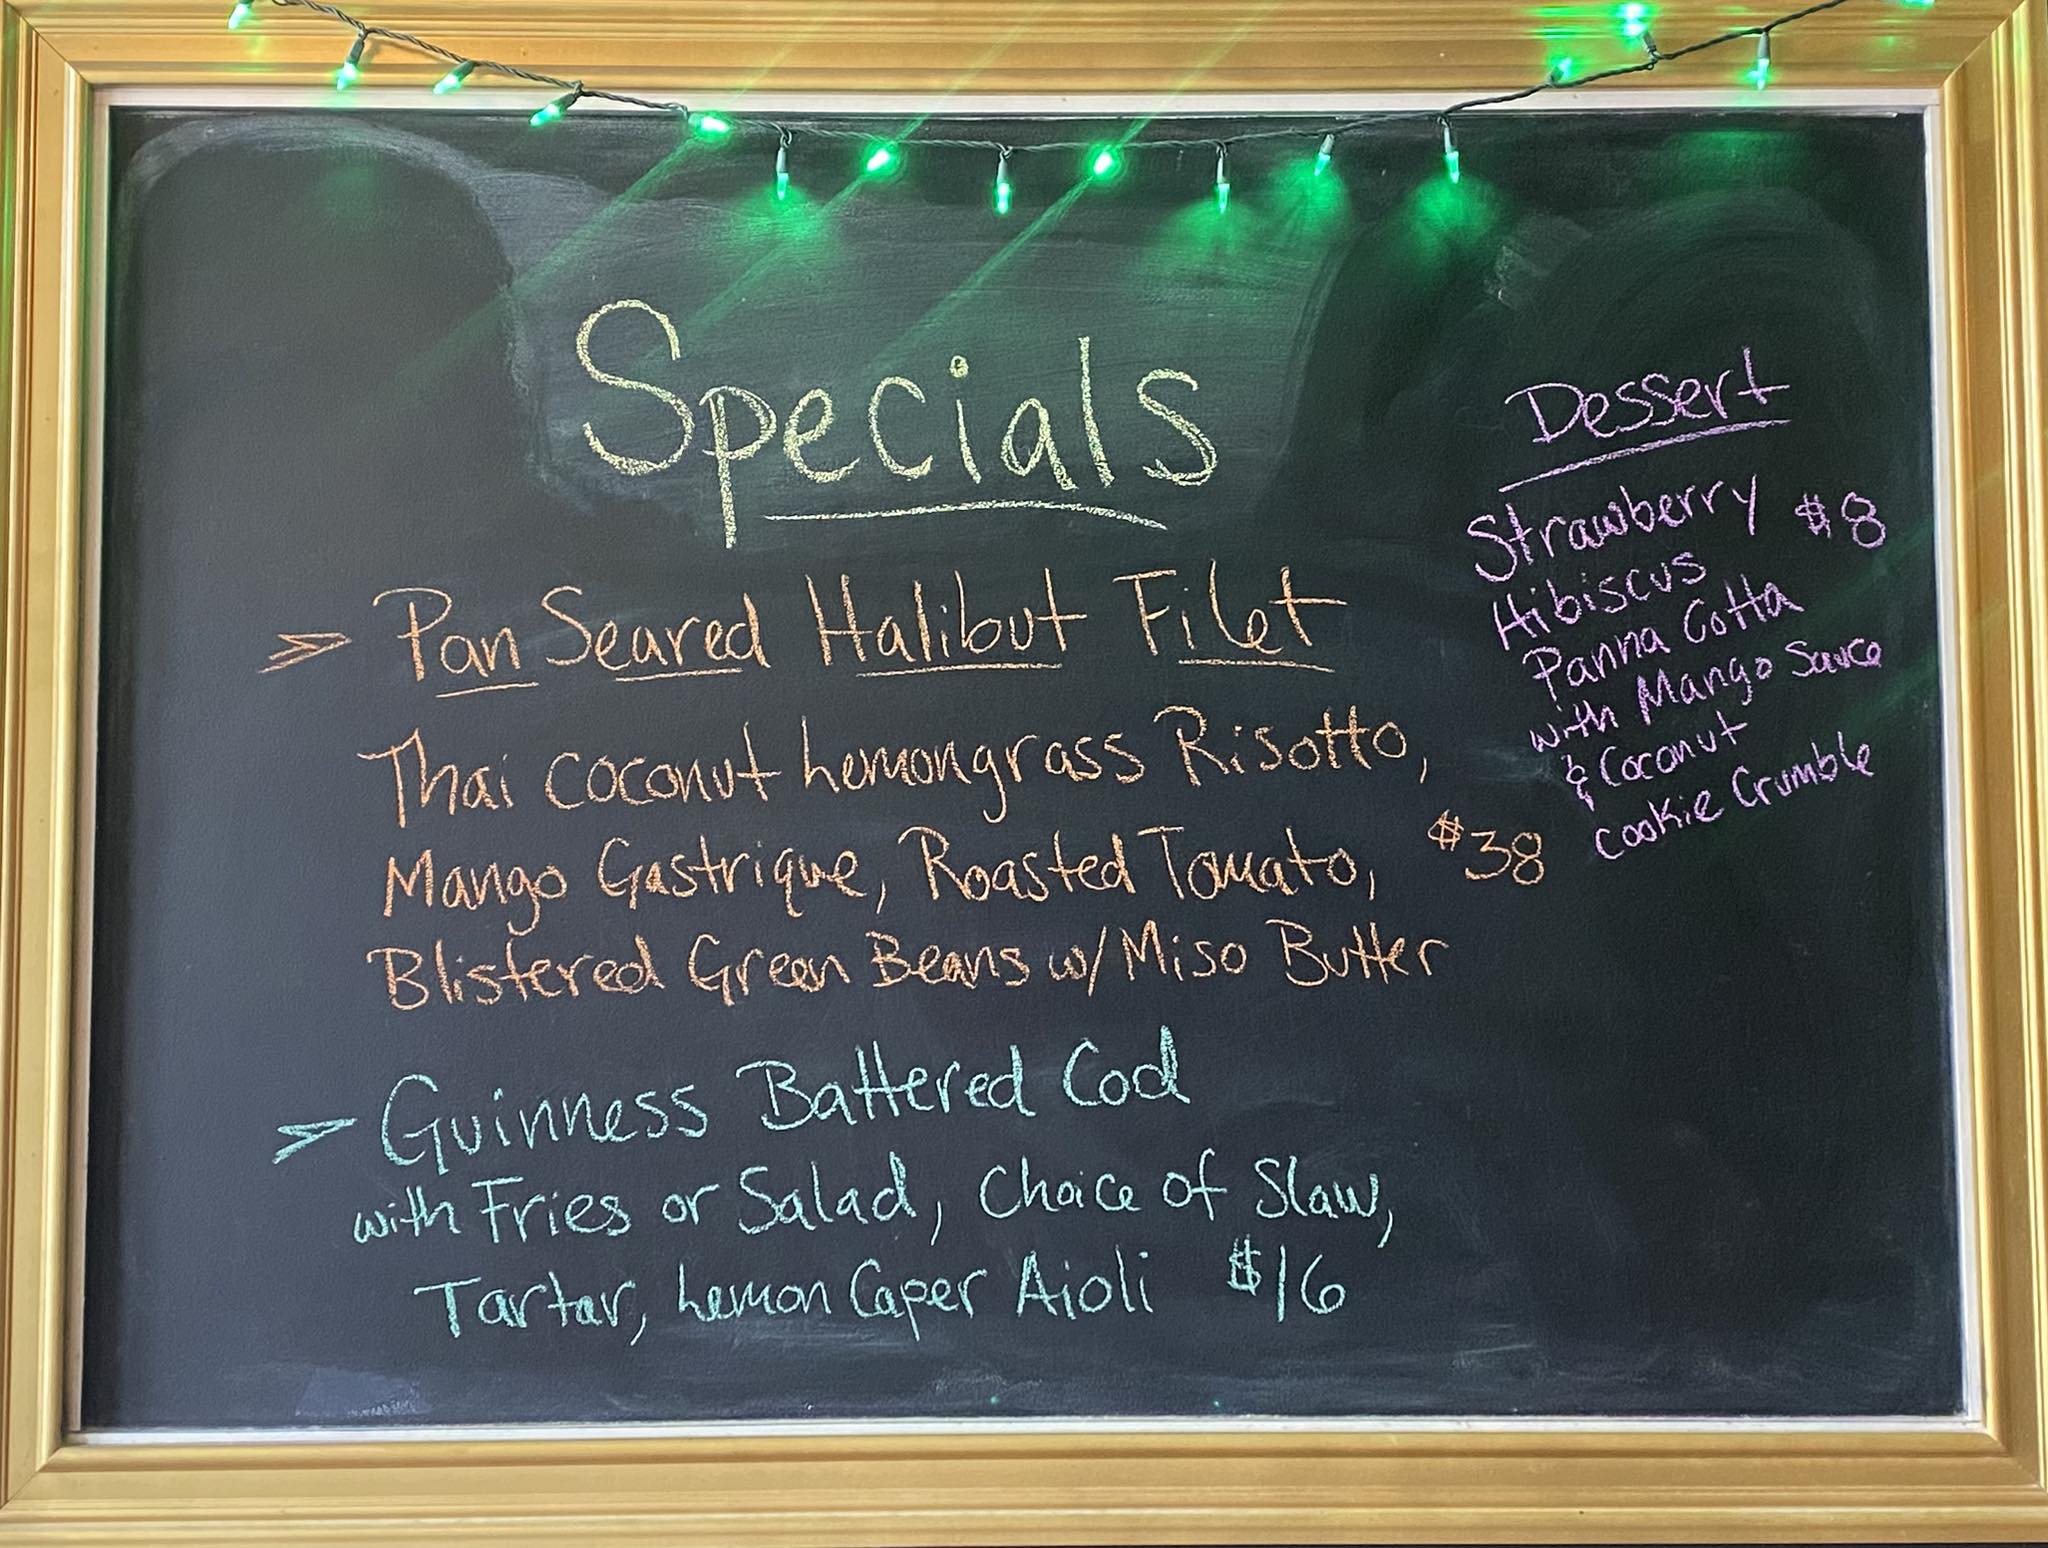 Specials
> Pan Seared Halibut Filet
Thai Coconut Lemongrass Risotto,
Mango Gastrique, Roasted Tomato, $38
Blistered Green Beans w/ Miso Butter
> Guinness Battered Cod
with Fries or Salad, Choice of Slaw,
Tartar, Lemon Caper Aioli $16
Dessert
Strawberry $8
Hibiscus
Panna Cotta
with Mango Sauce
& Coconut
Cookie Crumble